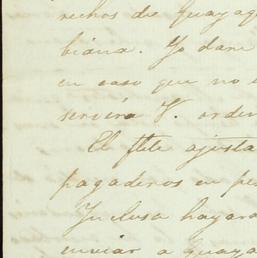 rechos de Guayaq
biana. Yo daré
en caso que no e
servirá V. orden
El flete ajusta
pagaderos en pe
Inclusa hayará
enviar a Guaya